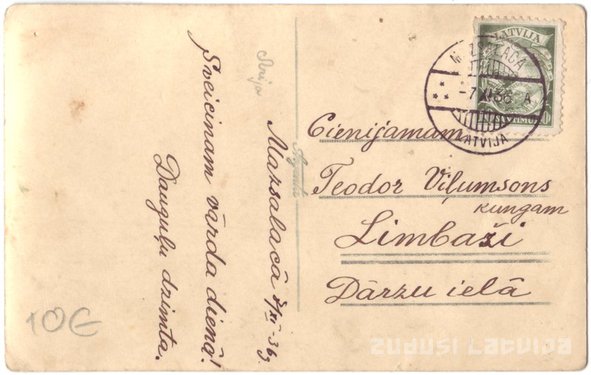 Mazsalacā 8/XI-36g.
Sveicinam vārda dienā!
Dauguļu dzimta.
Cienijamam
Teodor Viļumsons
kungam
Limbaži
Dārzu ielā
LATVIJA
-7 XI 36
LATVIJA
10€
zudusi Latvija